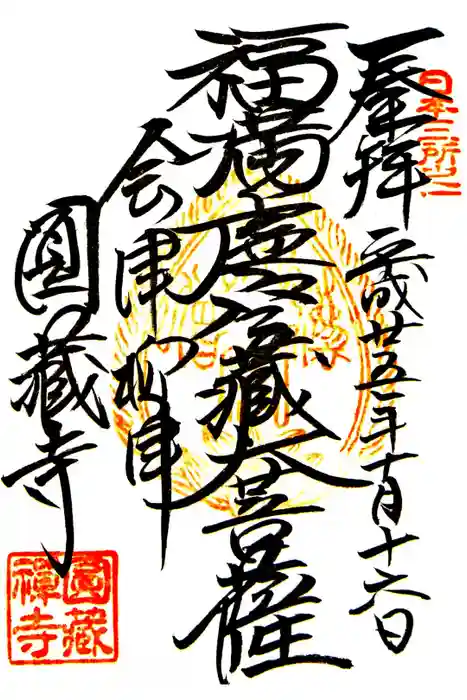 奉拝
日本三所之一
平成廿五年十月十六日
福満虚空藏大菩薩
会津柳津
圓藏寺
圓藏
禅寺